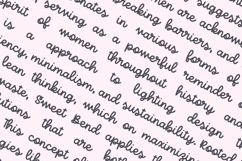 breaking barriers, and
women are acknow
onates in various forms of
serving as a powerful reminder
spirit of women throughout history and
is a approach to lighting design
iency, minimalism, and sustainability. Rooted
lean thinking, which on maximizing
waste, Sweet Bend applies
itions that are
This concept